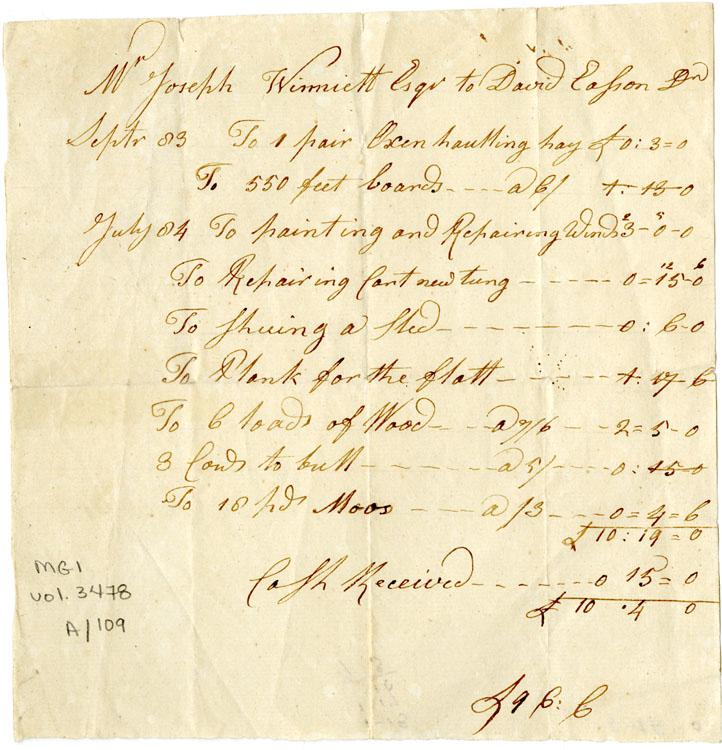 Mr Joseph Winniett Esqr to David Easson Dr
Septr 83 To 1 pair Oxen haulting hay £0:3=0
To 550 feet boards---- a 6/ 1-13-0
July 84 To painting and Repairing Winds 3-0-0
2 5
To Repairing Cart new tung ----- 0=15-0
12 6
To Shuing a Sled --------- 0:6-0
To Plank for the flatt ----- 1-17-6
To 6 loads of Wood-- a 7/6 -- 2=5-0
3 Cows to bull ------ a 5/ ---- 0:15-0
To 18 Moos ---- a /3 --- 0=4=6
£10:19=0
Cash Received -------- 0 15=0
£ 10 .4 0
£9 6:6
MG1
vol. 3478
A/109